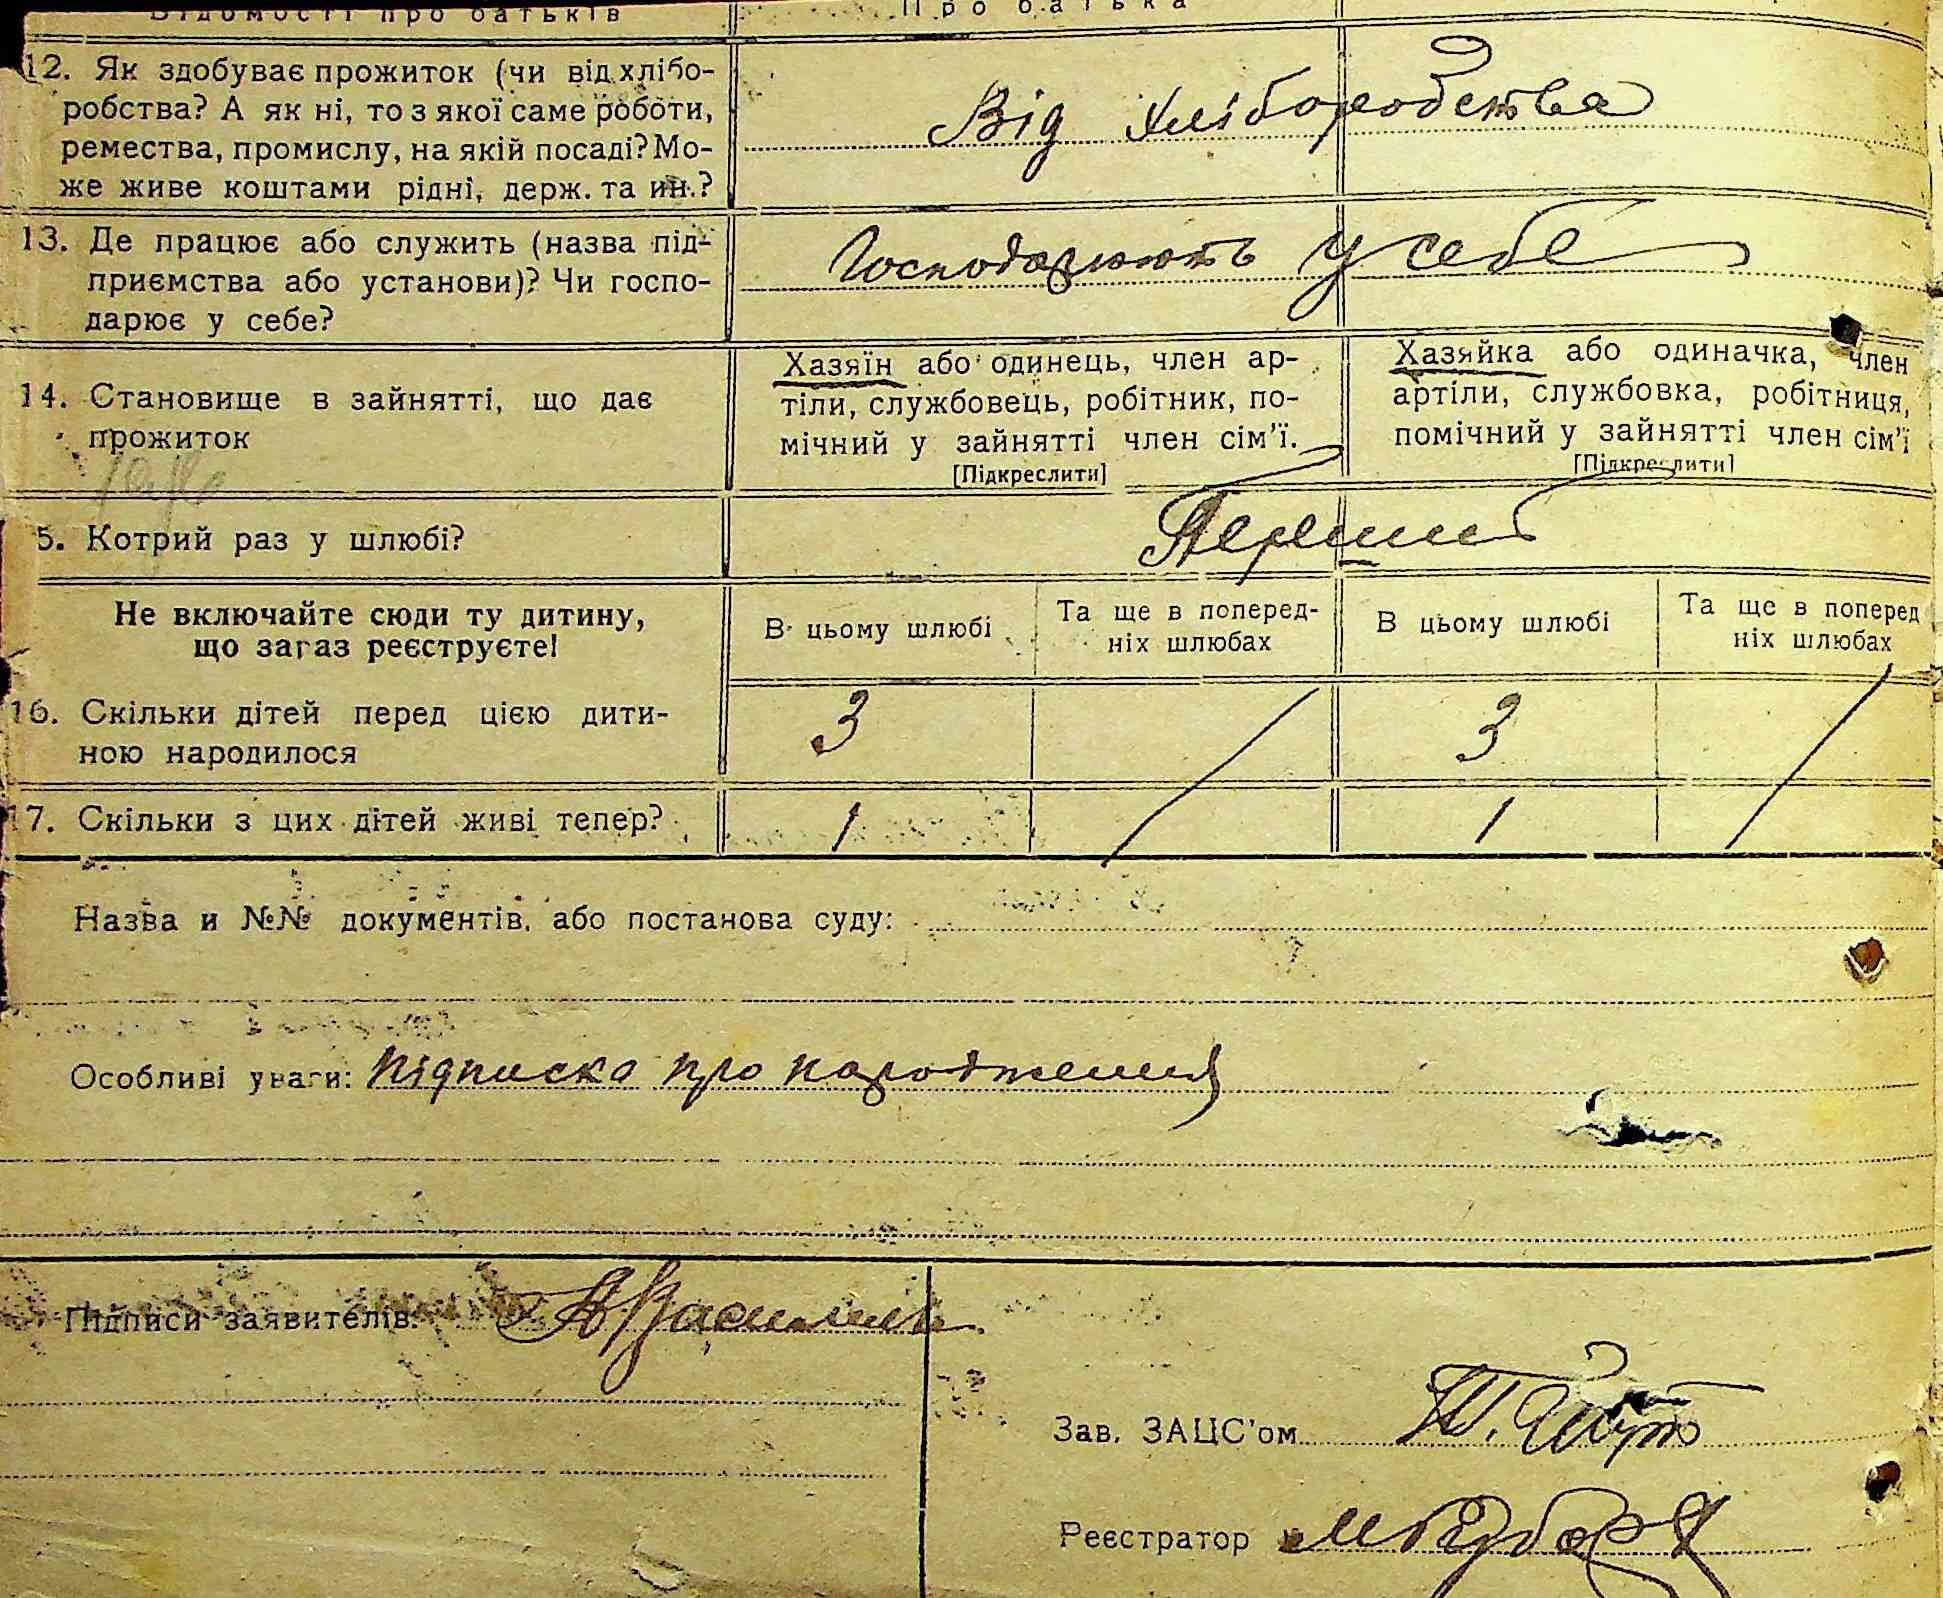 Відомості про батьків Про батька
12. Як здобуває прожиток (чи від хлібо-
робства? А як ні, то з якої саме роботи,
ремества, промислу, на якій посаді? Мо-
же живе коштами рідні, держ. та ин.?
Від хлібородства
13. Де працює або служить (назва під-
приємства або установи)? Чи госпо-
дарює у себе?
Господарюють у себе
14. Становище в зайнятті, що дає
прожиток
Хазяїн або одинець, член ар-
тіли, службовець, робітник, по-
мічний у зайнятті член сім'ї.
[Підкреслити]
Хазяйка або одиначка, член
артіли, службовка, робітниця,
помічний у зайнятті член сім'ї
[Підкреслити]
5. Котрий раз у шлюбі?
Перший
Не включайте сюди ту дитину,
що зараз реєструєте!
В цьому шлюбі
Та ще в поперед-
ніх шлюбах
В цьому шлюбі
Та ще в поперед
ніх шлюбах
16. Скільки дітей перед цією дити-
ною народилося
3 3
17. Скільки з цих дітей живі тепер?
1 1
Назва и №№ документів, або постанова суду:
Особливі уваги: підписка про народження
Підписи заявителів:
Зав. ЗАЦС'ом
Реєстратор